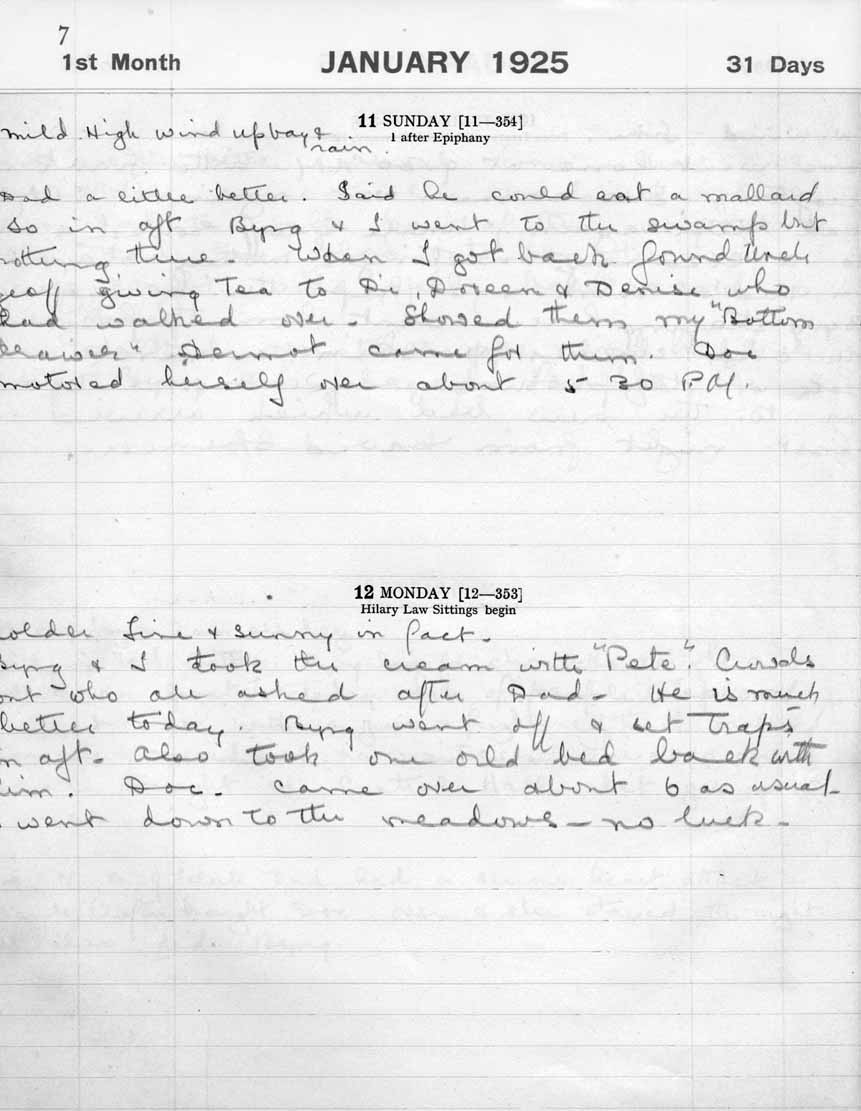 7
1st Month JANUARY 1925 31 Days
11 SUNDAY [11—354]
1 after Epiphany
mild. High wind up bay &
rain.
Dad a little better. Said he could eat a mallard
so in aft Byng & I went to the swamp but
nothing there. When I got back found Uncle
Geoff giving Tea to Di, Doreen & Denise who
had walked over. Showed them my "Bottom
Dermot came for them. Doc
motored herself over about 5 30 P.M.
12 MONDAY [12—353]
Hilary Law Sittings begin
older Fine & sunny in fact.
Byng & I took the cream with "Pete". Crowds
ont who all asked after Dad. He is much
better today. Byng went off & set Traps
in aft. Also took one old bed back with
him. Doc. came over about 6 as usual
went down to the meadows — no luck.